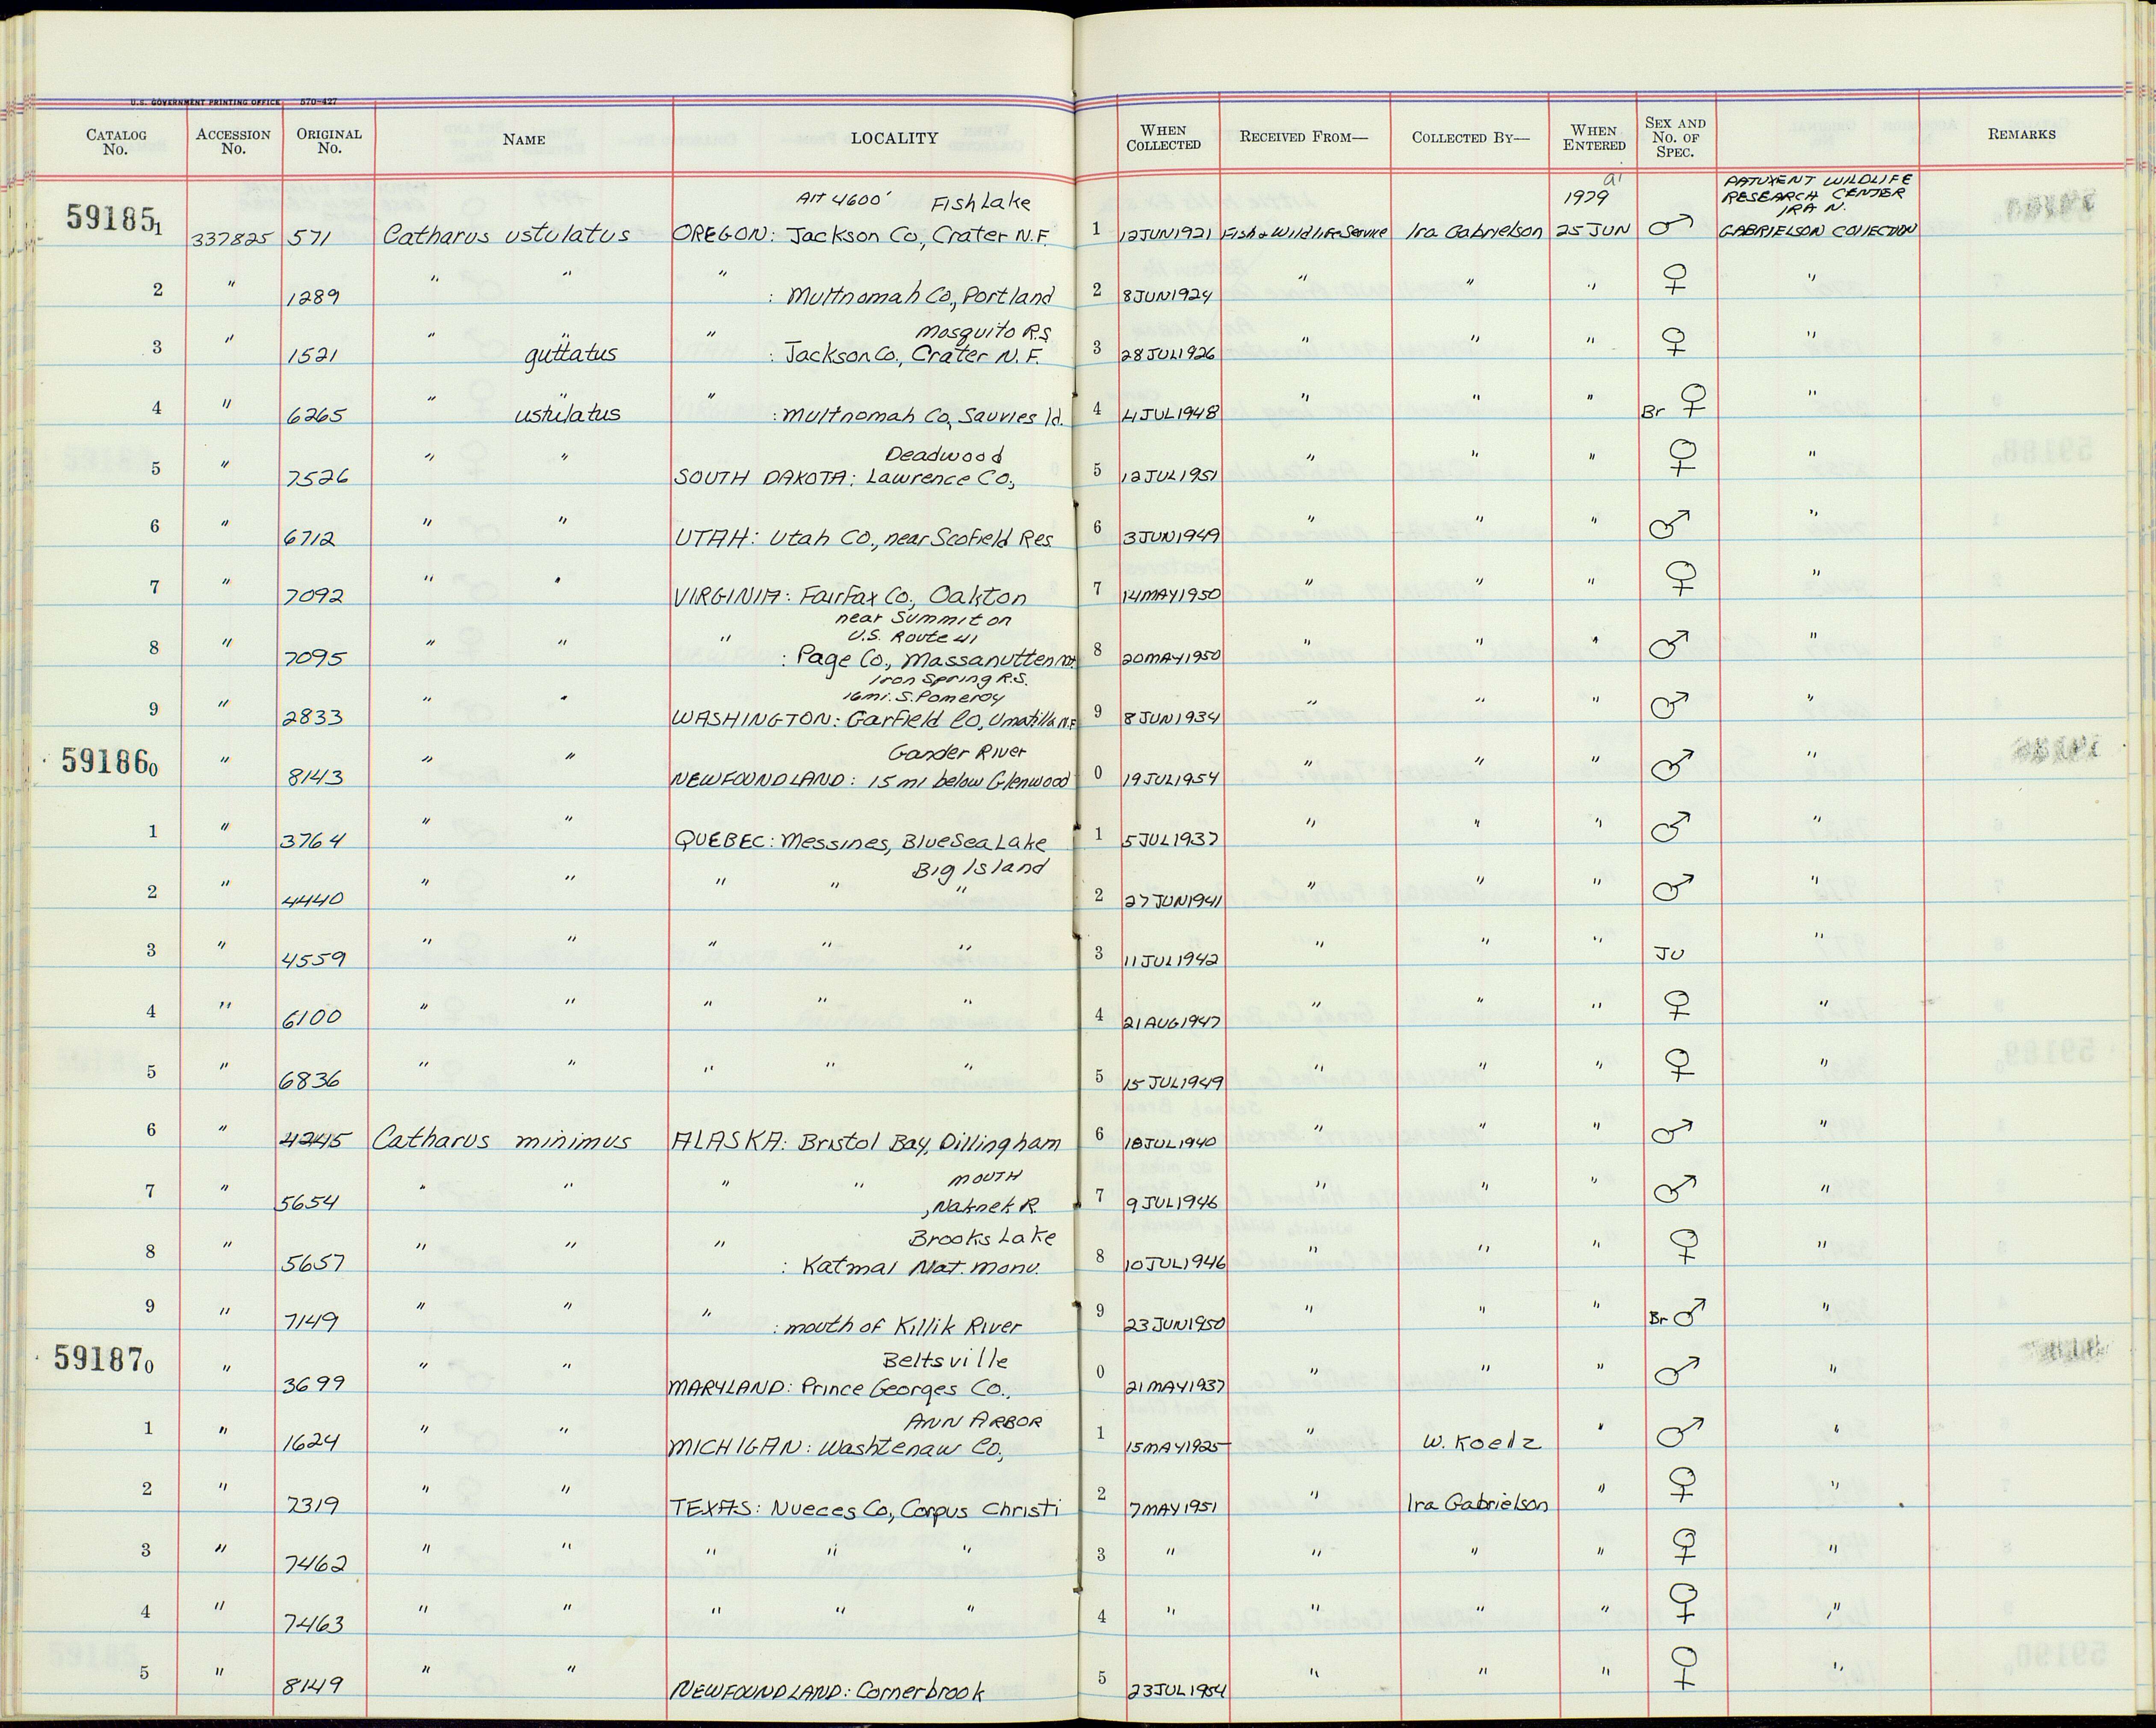 U.S. GOVERNMENT PRINTING OFFICE 570-427
CATALOG No. ACCESSION No. ORIGINAL No. NAME LOCALITY WHEN COLLECTED RECEIVED FROM— COLLECTED BY— WHEN ENTERED SEX AND No. OF SPEC. REMARKS
Alt 4600' Fish Lake 1979 PATUXENT WILDLIFE RESEARCH CENTER IRA N.
591851 337825 571 Catharus ustulatus OREGON: Jackson Co, Crater N.F. 1 12JUN1921 Fish & Wildlife Service Ira Gabrielson 25 JUN ♂ GABRIELSON COllECTION
2 " 1289 " " " : Multnomah Co., Portland 2 8JUN1924 " " " ♀ "
Mosquito R.S
3 " 1521 " guttatus " : Jackson Co., Crater N.F. 3 28JUL1926 " " " ♀ "
4 " 6265 " ustulatus " : Multnomah Co, Sauvies Id. 4 4JUL1948 " " " Br ♀ "
Deadwood
5 " 7526 " " SOUTH DAKOTA: Lawrence Co., 5 12JUL1951 " " " ♀ "
6 " 6712 " " UTAH: Utah Co., near Scofield Res 6 3JUN1949 " " " ♂ "
7 " 7092 " " VIRGINIA: Fairfax Co., Oakton 7 14MAY1950 " " " ♀ "
near Summit on
U.S. Route 41
8 " 7095 " " " : Page Co., Massanutten Mt. 8 20MAY1950 " " " ♂ "
Iron Spring R.S.
16mi. S. Pomeroy
9 " 2833 " " WASHINGTON: Garfield Co, Umatilla N.F 9 8JUN1934 " " " ♂ "
Gander River
591860 " 8143 " " NEWFOUNDLAND: 15 mi below Glenwood 0 19JUL1954 " " " ♂ "
1 " 3764 " " QUEBEC: Messines, Blue Sea Lake 1 5JUL1937 " " " ♂ "
Big Island
2 " 4440 " " " " " 2 27JUN1941 " " " ♂ "
3 " 4559 " " " " " 3 11JUL1942 " " " JU "
4 " 6100 " " " " " 4 21AUG1947 " " " ♀ "
5 " 6836 " " " " " 5 15JUL1949 " " " ♀ "
6 " 4245 Catharus minimus ALASKA: Bristol Bay, Dillingham 6 18JUL1940 " " " ♂ "
MOUTH
7 " 5654 " " " " , Naknek R. 7 9JUL1946 " " " ♂ "
Brooks Lake
8 " 5657 " " " : Katmai Nat. Monu. 8 10JUL1946 " " " ♀ "
9 " 7149 " " " : mouth of Killik River 9 23JUN1950 " " " Br ♂ "
Beltsville
591870 " 3699 " " MARYLAND: Prince Georges Co., 0 21MAY1937 " " " ♂ "
ANN ARBOR
1 " 1624 " " MICHIGAN: Washtenaw Co., 1 15MAY1925 " W. Koelz " ♂ "
2 " 7319 " " TEXAS: Nueces Co, Corpus Christi 2 7MAY1951 " Ira Gabrielson " ♀ "
3 " 7462 " " " " " 3 " " " " ♀ "
4 " 7463 " " " " " 4 " " " " ♀ "
5 " 8149 " " NEWFOUNDLAND: Cornerbrook 5 23JUL1954 " " " ♀ "